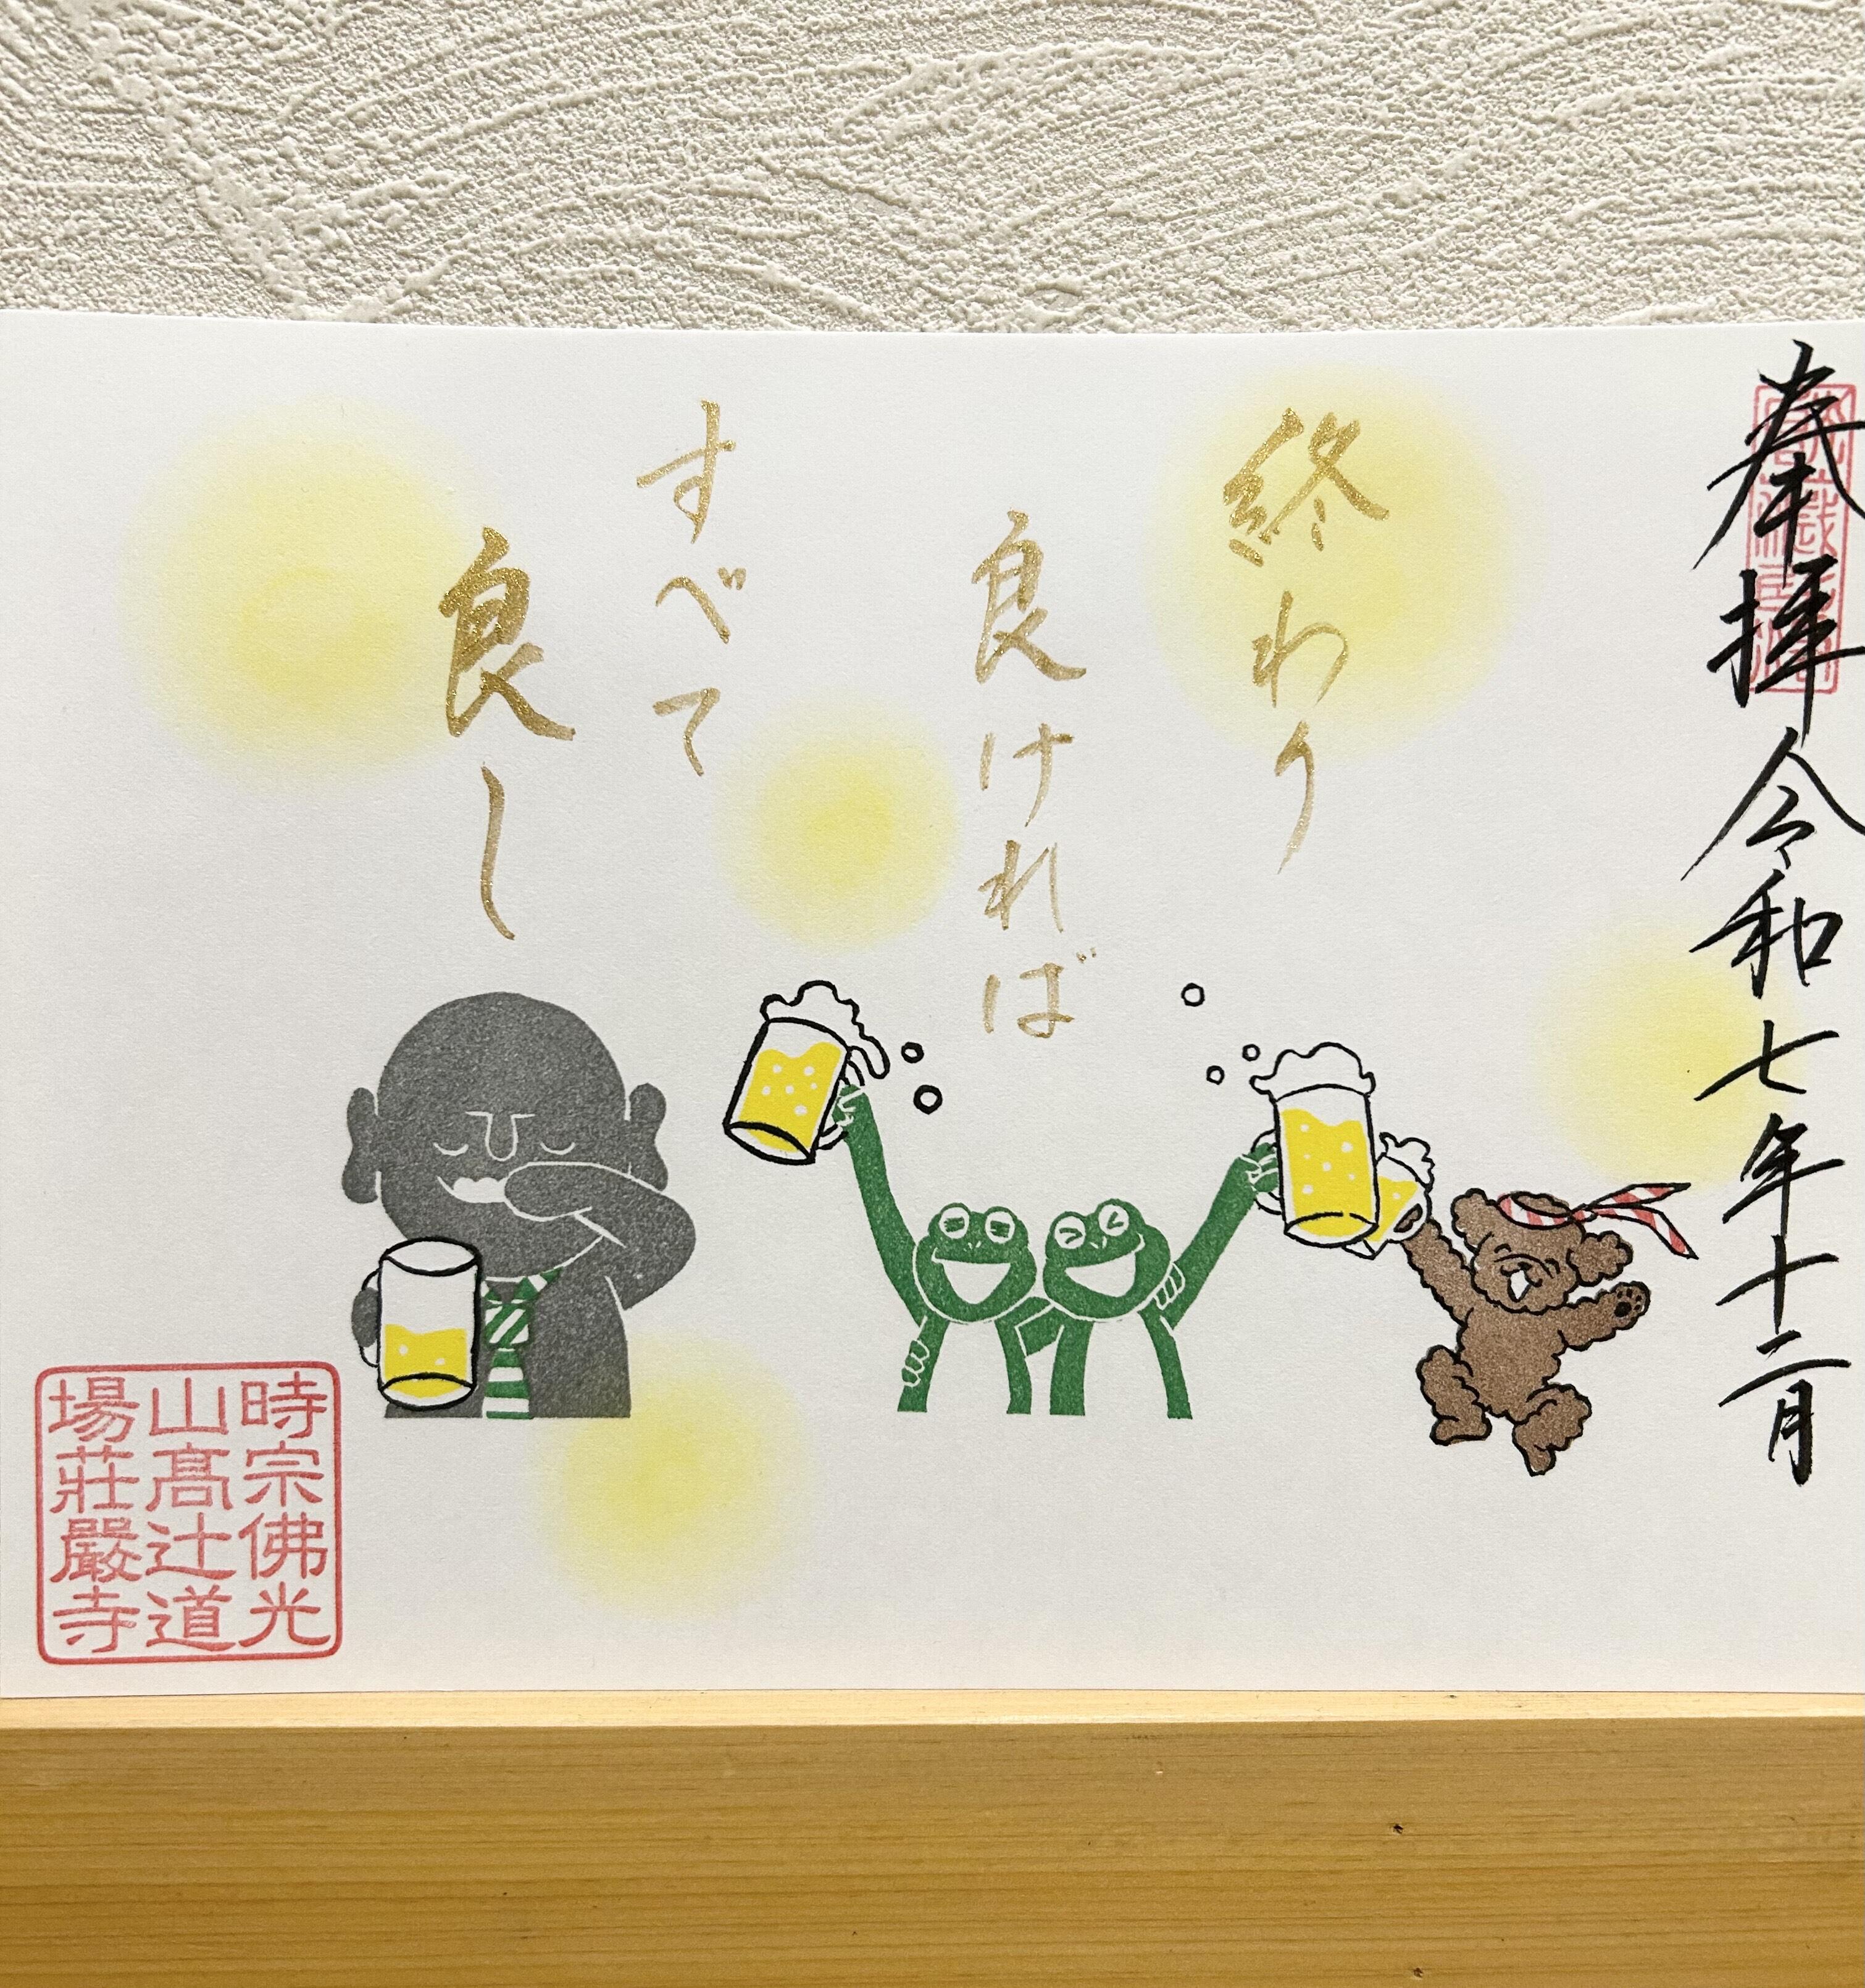 奉拝 令和七年十二月
終わり
良ければ
すべて
良し
時宗佛光
山髙辻道
場莊嚴寺